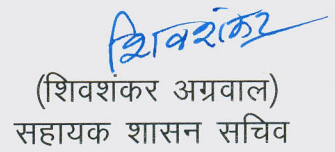 शिवशंकर
(शिवशंकर अग्रवाल)
सहायक शासन सचिव